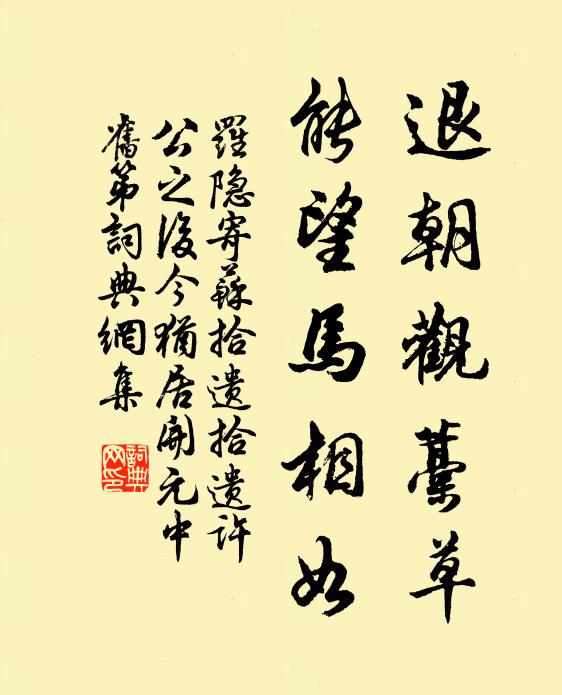 退朝觀藁草
能望馬相如
羅隐寄蘇拾遗拾遗許
公之後今猶居開元中
舊第詞典網集
詞典
网印